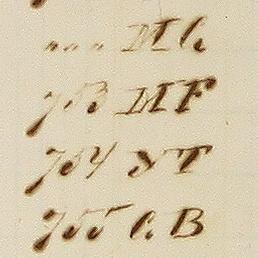 " " " M C.
753 M F
754 Y T
755 C. B